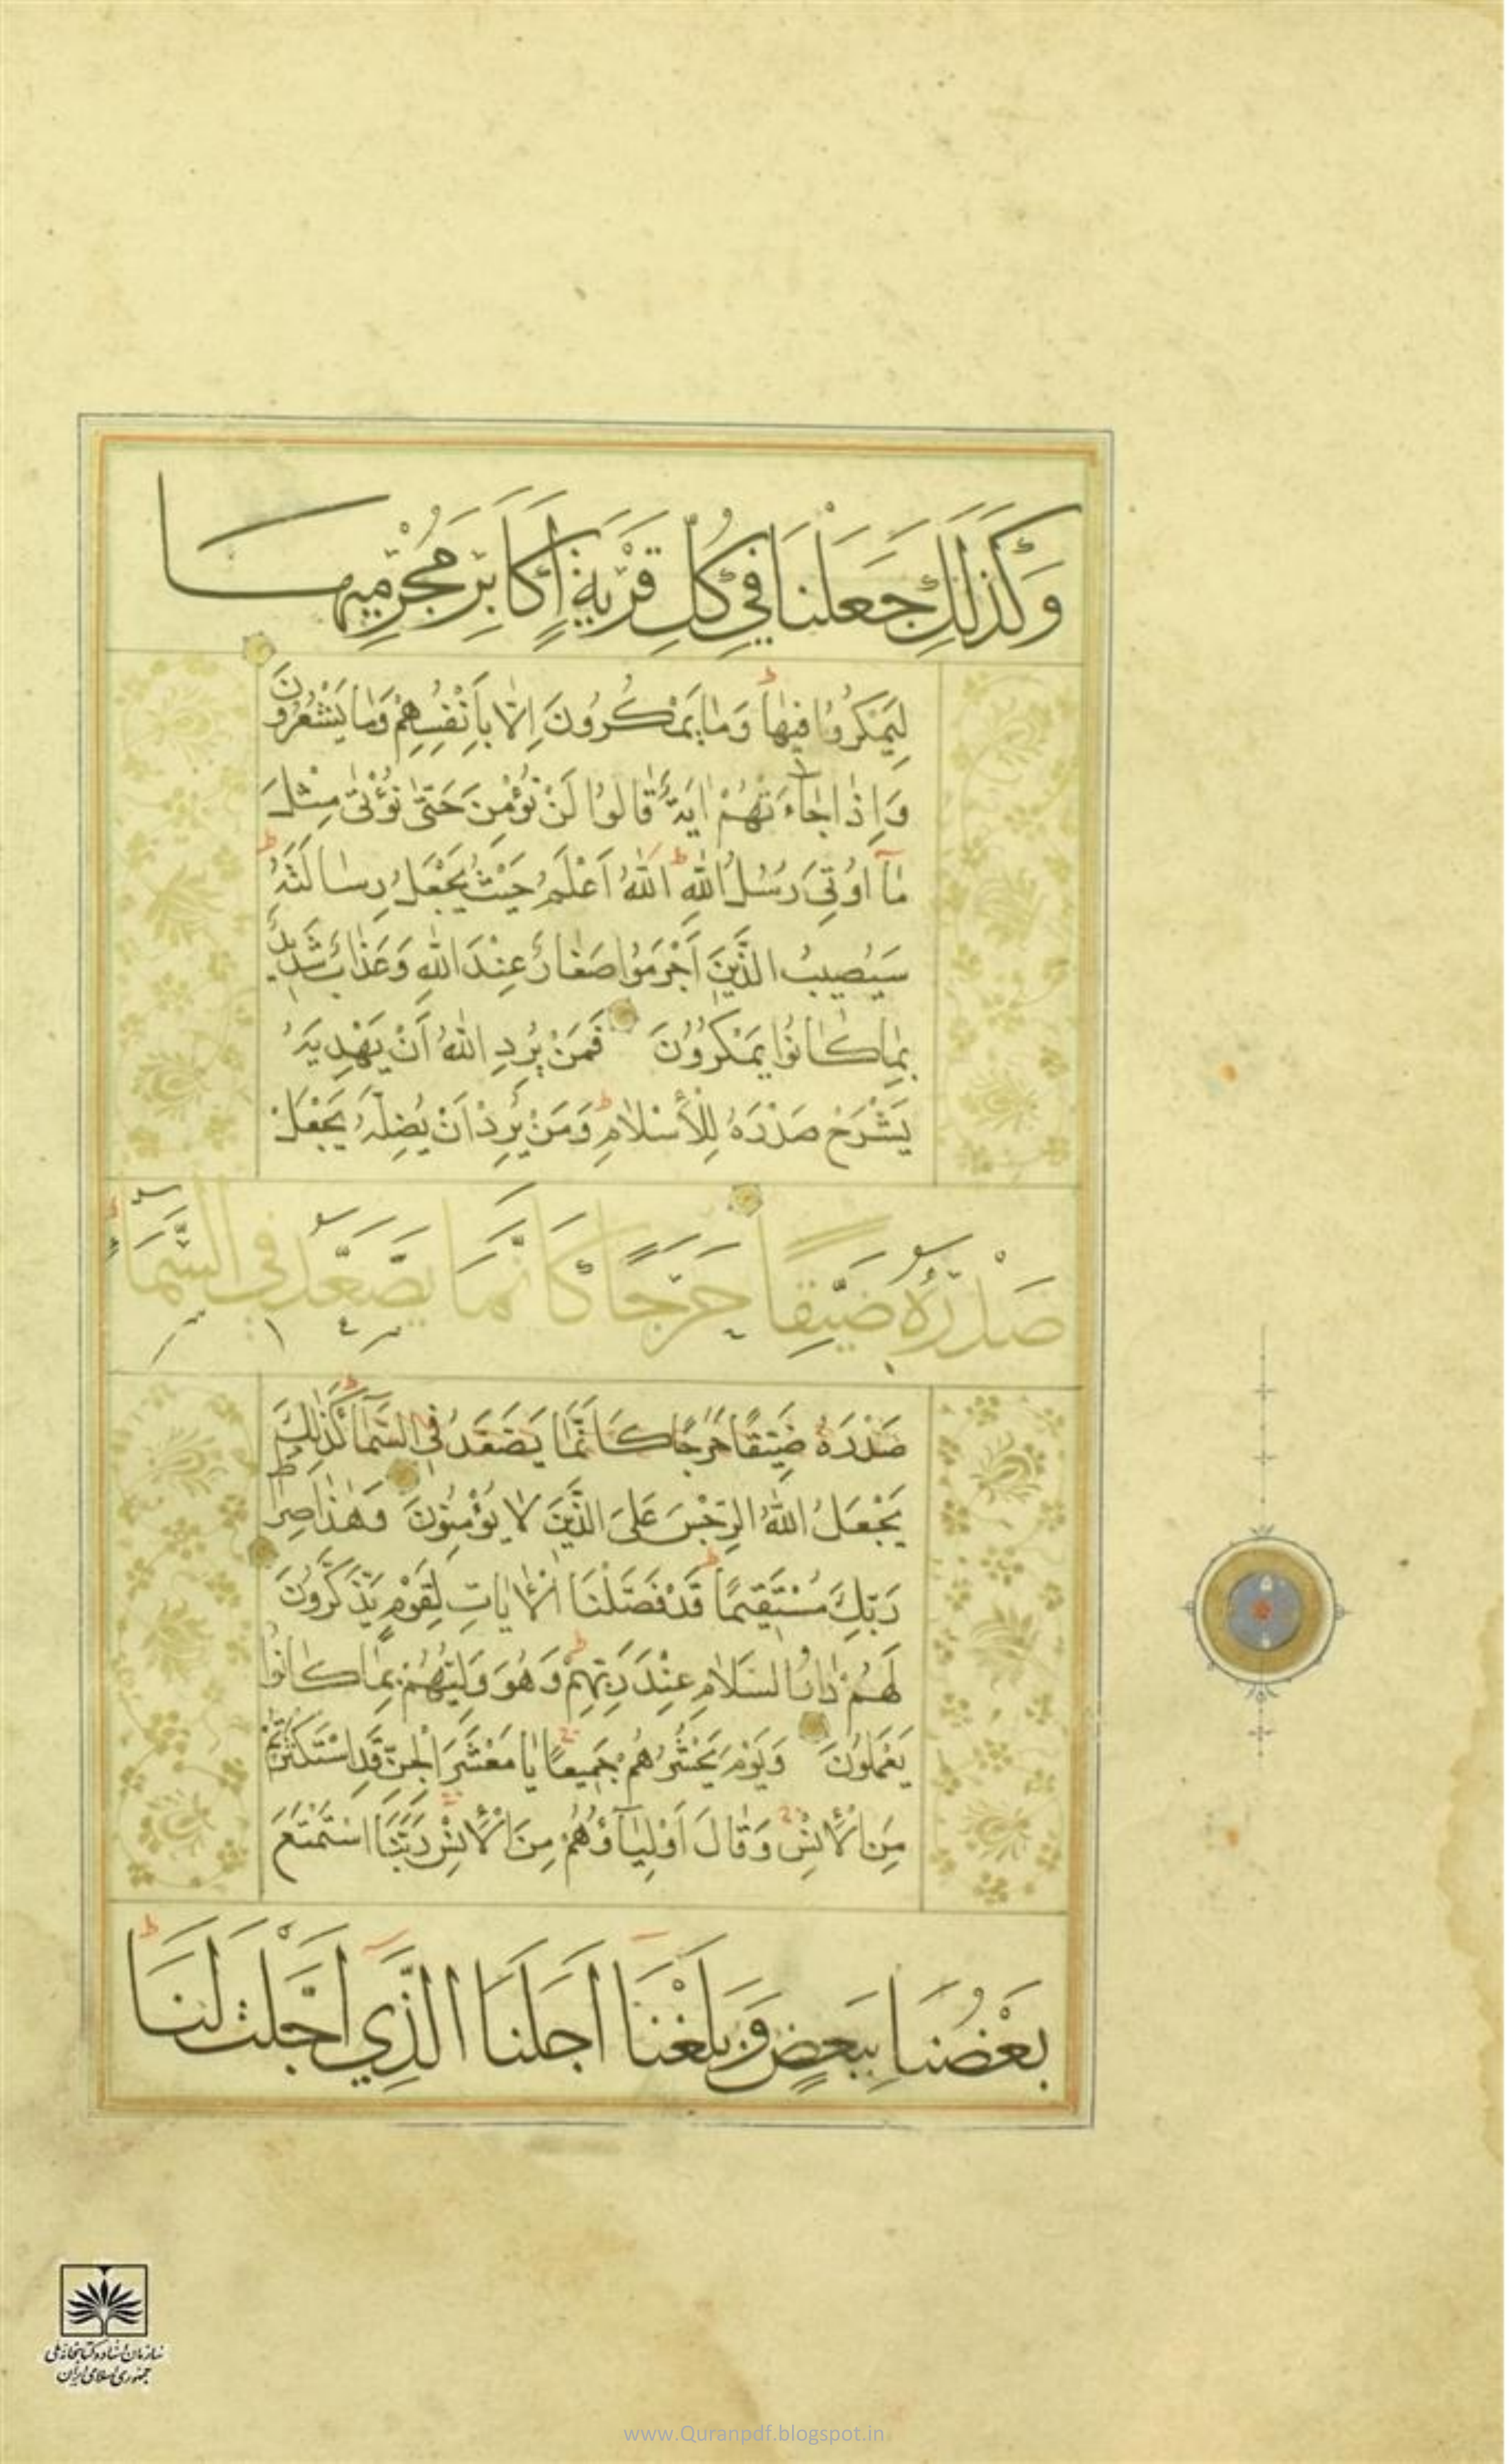 وَكَذَلِكَ جَعَلْنَا فِي كُلِّ قَرْيَةٍ أَكَابِرَ مُجْرِمِيهَا
لِيَمْكُرُوا فِيهَا وَمَا يَمْكُرُونَ اِلَّا بِأَنْفُسِهِمْ وَمَا يَشْعُرُونَ
وَاِذَا جَاءَتْهُمْ اٰيَةٌ قَالُوا لَنْ نُؤْمِنَ حَتّٰى نُؤْتٰى مِثْلَ
مَا اُوتِيَ رُسُلُ اللهِ اَللهُ اَعْلَمُ حَيْثُ يَجْعَلُ رِسَالَتَهُ
سَيُصِيبُ الَّذِينَ اَجْرَمُوا صَغَارٌ عِنْدَ اللهِ وَعَذَابٌ شَدِيدٌ
بِمَا كَانُوا يَمْكُرُونَ فَمَنْ يُرِدِ اللهُ اَنْ يَهْدِيَهُ
يَشْرَحْ صَدْرَهُ لِلْاِسْلَامِ وَمَنْ يُرِدْ اَنْ يُضِلَّهُ يَجْعَلْ
صَدْرَهُ ضَيِّقًا حَرَجًا كَاَنَّمَا يَصَّعَّدُ فِي السَّمَاءِ
صَدْرَهُ ضَيِّقًا حَرَجًا كَاَنَّمَا يَصَّعَّدُ فِي السَّمَاءِ كَذٰلِكَ
يَجْعَلُ اللهُ الرِّجْسَ عَلَى الَّذِينَ لَا يُؤْمِنُونَ وَهٰذَا صِرَاطُ
رَبِّكَ مُسْتَقِيمًا قَدْ فَصَّلْنَا الْاٰيَاتِ لِقَوْمٍ يَذَّكَّرُونَ
لَهُمْ دَارُ السَّلَامِ عِنْدَ رَبِّهِمْ وَهُوَ وَلِيُّهُمْ بِمَا كَانُوا
يَعْمَلُونَ وَيَوْمَ يَحْشُرُهُمْ جَمِيعًا يَا مَعْشَرَ الْجِنِّ قَدِ اسْتَكْثَرْتُمْ
مِنَ الْاِنْسِ وَقَالَ اَوْلِيَاؤُهُمْ مِنَ الْاِنْسِ رَبَّنَا اسْتَمْتَعَ
بَعْضُنَا بِبَعْضٍ وَبَلَغْنَا اَجَلَنَا الَّذِي اَجَّلْتَ لَنَا
سازمان اسناد و کتابخانه ملی
جمهوری اسلامی ایران
www.Quranpdf.blogspot.in